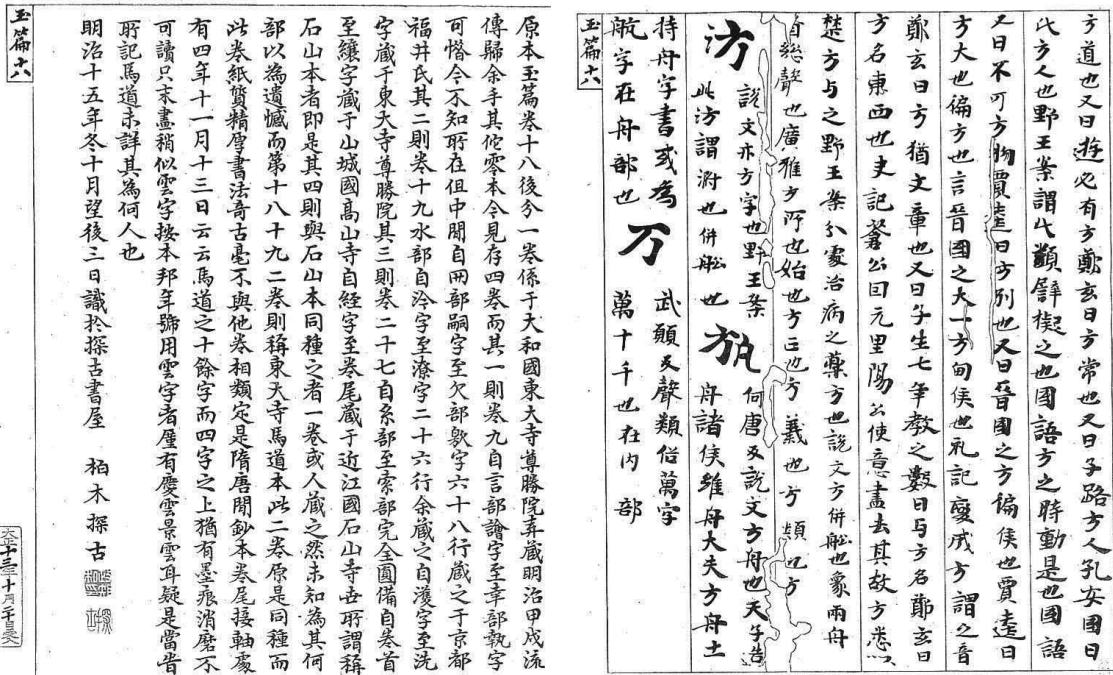 方道也又曰遊必有方鄭玄曰方常也又曰子路方人孔安國曰
比方人也野王案謂比類譬擬之也國語方之時動是也國語
又曰不可方物賈逵曰方別也又曰晉國之方偏侯也賈逵曰
方大也偏方也言晉國之大一方甸侯也礼記變成方謂之音
鄭玄曰方猶文章也又曰子生七年教之數曰与方名鄭玄曰
方名東西也史記蒼公曰元里陽公使意盡去其故方悉以
楚方与之野王案分處治病之藥方也說文方併舩也象兩舟
首緫聲也廣雅方所也始也方正也方義也方類也方
汸 說文亦方字也野王案
此汸謂泭也併舩也
斻 何唐反說文方舟也天子造
舟諸侯維舟大夫方舟士
持舟字書或為
航字在舟部也
万 武願反聲類俗萬字
萬十千也在内部
玉篇十八
原本玉篇卷十八後分一卷係于大和國東大寺尊勝院弆藏明治甲戌流
傳歸余手其佗零本今見存四卷而其一則卷九自言部譮字至幸部執字
可惜今不知所在但中間自㕯部嗣字至欠部歍字六十八行藏之于京都
福井氏其二則卷十九水部自泠字至潦字二十六行余藏之自濩字至洗
字藏于東大寺尊勝院其三則卷二十七自糸部至索部完全圓備自卷首
至纕字藏于山城國高山寺自経字至卷尾藏于近江國石山寺世所謂稱
石山本者即是其四則與石山本同種之者一卷或人藏之然未知為其何
部以為遺憾而第十八十九二卷則稱東大寺馬道本此二卷原是同種而
此卷紙質精厚書法奇古毫不與他卷相類定是隋唐間鈔本卷尾接軸處
有四年十一月十三日云云馬道之十餘字而四字之上猶有墨痕消磨不
可讀只末畫稍似雲字按本邦年號用雲字者厪有慶雲景雲耳疑是當昔
所記馬道未詳其為何人也
明治十五年冬十月望後三日識於探古書屋 柏木探古
玉篇十八